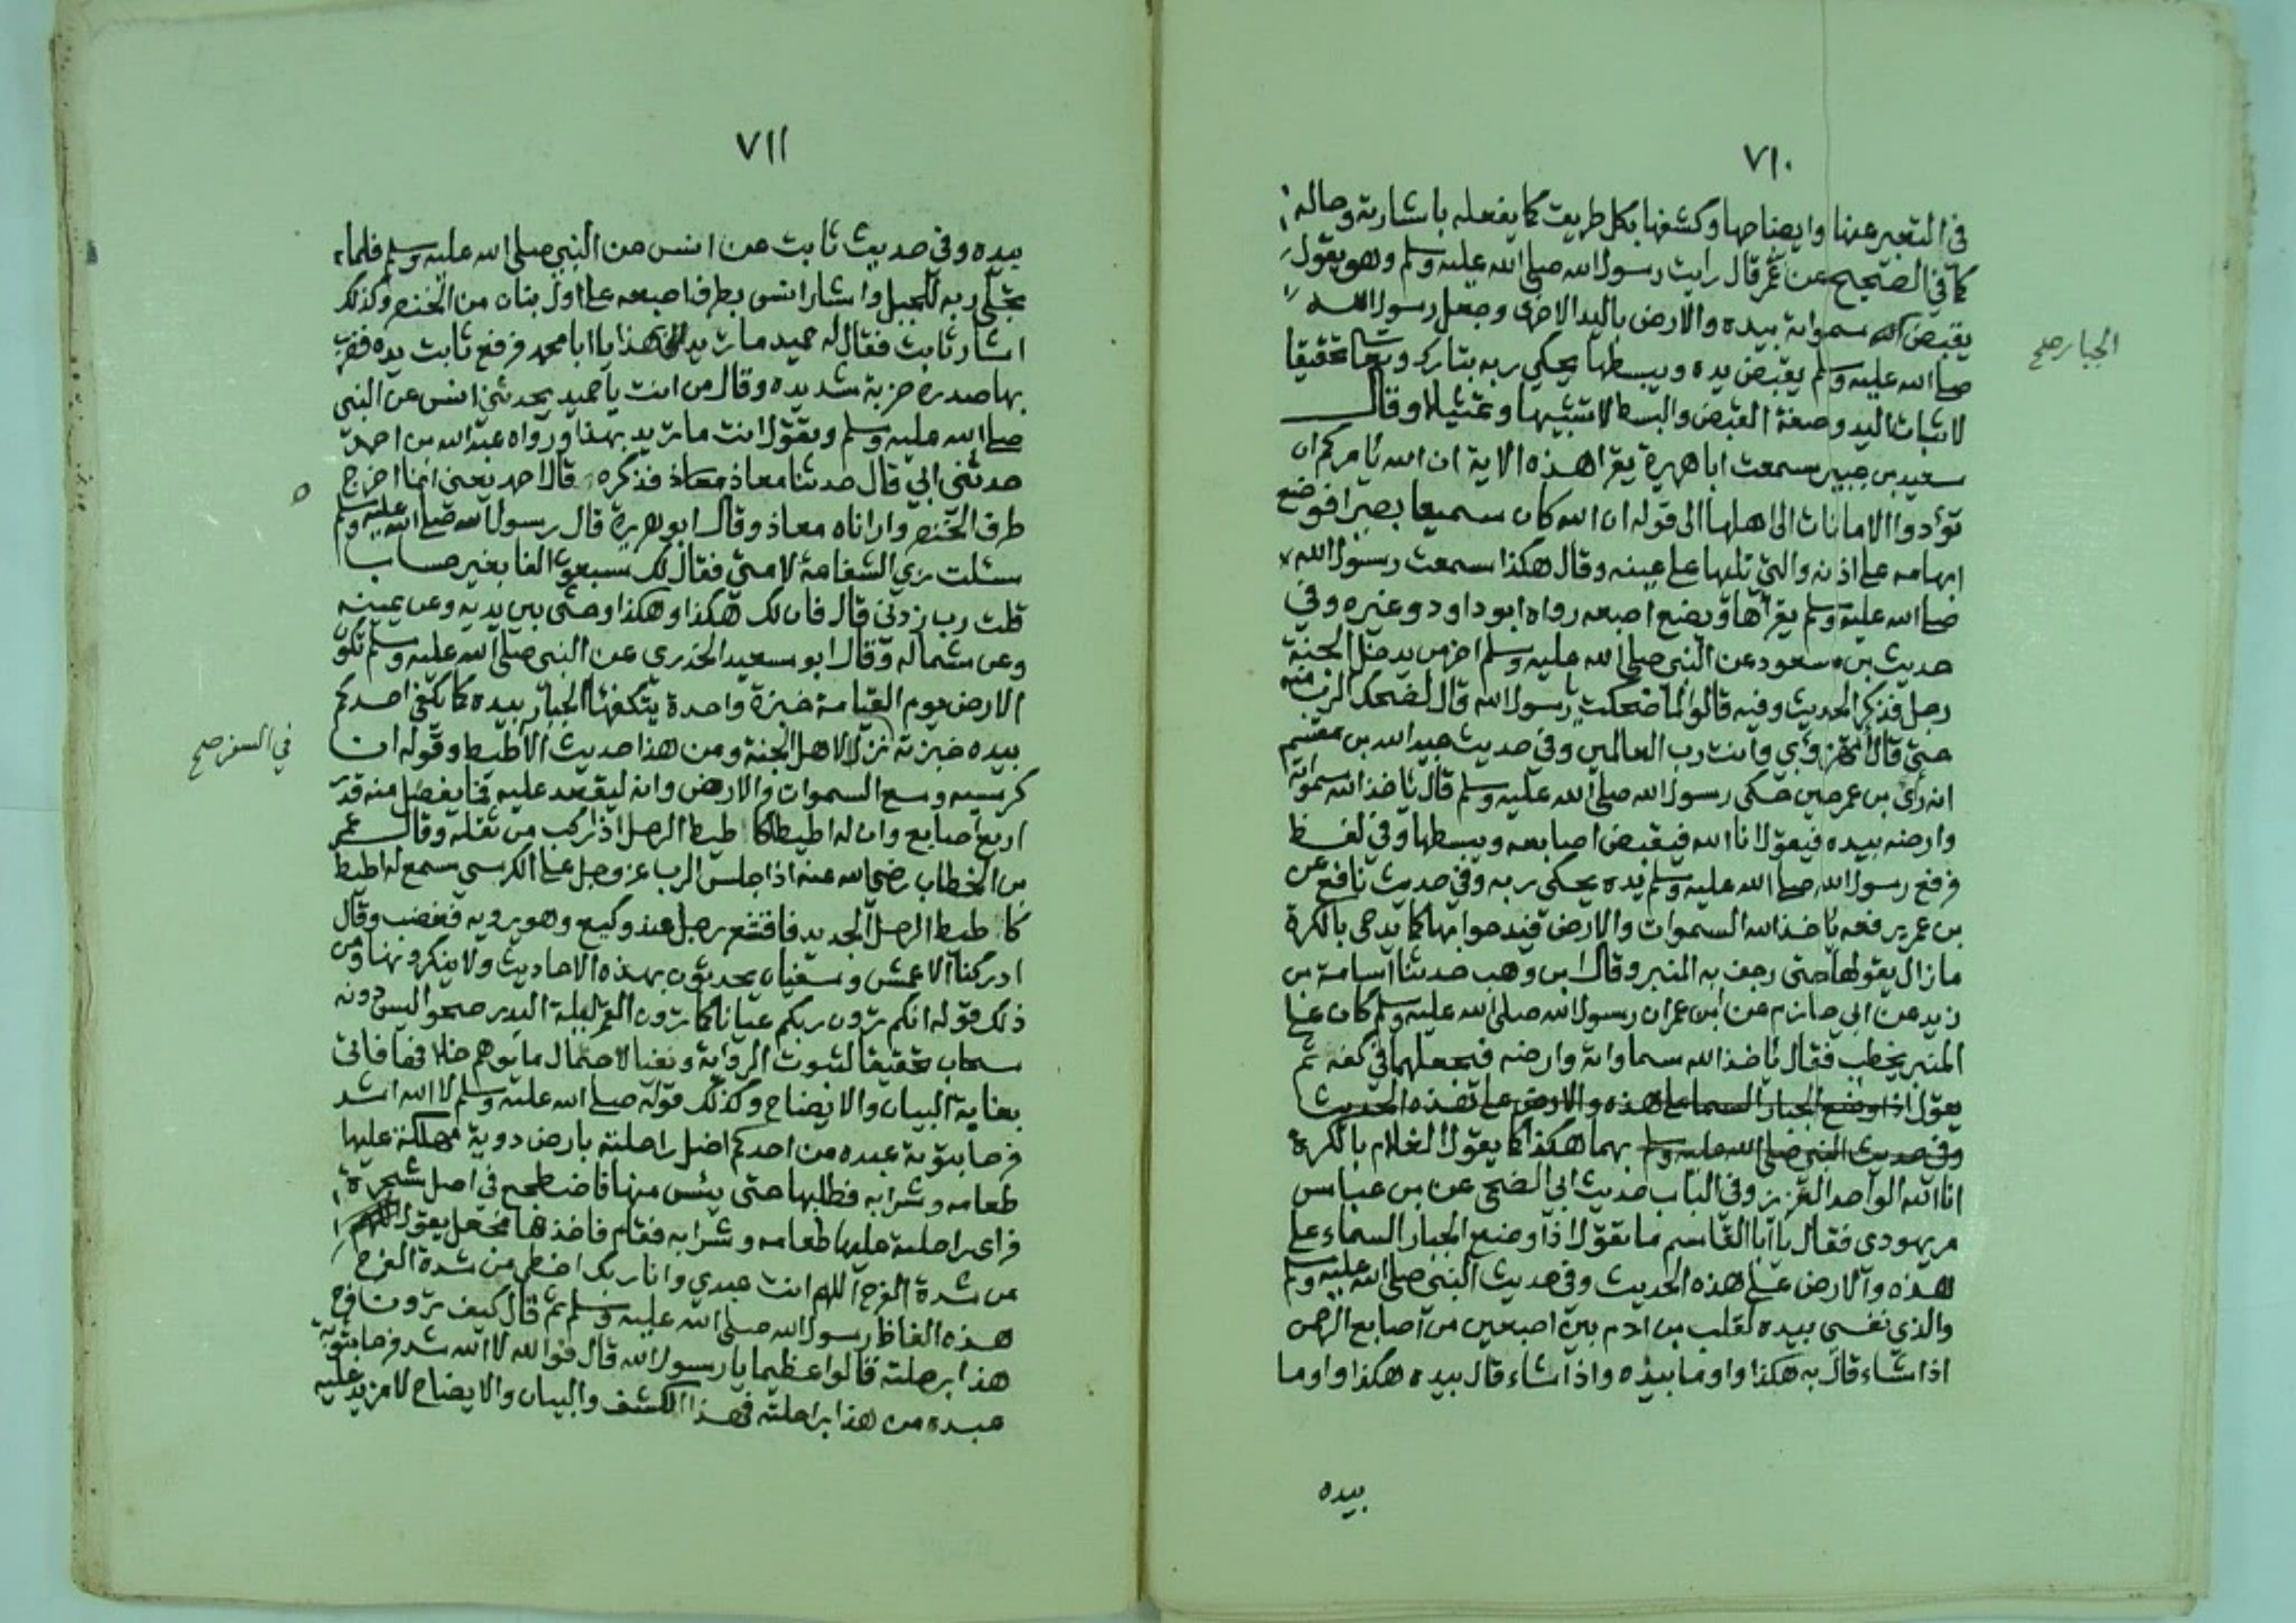 ٧١٠
في التعبير عنها وايضاحها وكشفها بكل طريق كما يفعله باشارته وحاله
كما في الصحيح عن عمر قال رايت رسول الله صلى الله عليه وسلم وهو يقول
يقبض الله سمواته بيده والارض باليد الاخرى وجعل رسول الله
الجبار صح
صلى الله عليه وسلم يقبض يده ويبسطها يحكي ربه تبارك وتعالى تحقيقا
لاثبات اليد وصفة القبض والبسط لا تشبيها وتمثيلا وقال
سعيد بن جبير سمعت ابا هريرة يقرا هذه الاية ان الله يامركم ان
تؤدوا الامانات الى اهلها الى قوله ان الله كان سميعا بصيرا فوضع
ابهامه على اذنه والتي تليها على عينه وقال هكذا سمعت رسول الله
صلى الله عليه وسلم يقرأها ويضع اصبعه رواه ابو داود وغيره وفي
حديث بن مسعود عن النبي صلى الله عليه وسلم اخر من يدخل الجنة
رجل فذكر الحديث وفيه قالوا لم ضحكت يا رسول الله قال لضحك الرب منه
حتى قال اتهزأ بي وانت رب العالمين وفي حديث عبيد الله بن مقسم
انه رأى بن عمر حين حكى رسول الله صلى الله عليه وسلم قال ياخذ الله سمواته
وارضه بيده فيقول انا الله فيقبض اصابعه ويبسطها وفي لفظ
فرفع رسول الله صلى الله عليه وسلم يده يحكي ربه وفي حديث نافع عن
بن عمر يرفعه ياخذ الله السموات والارض فيدحوا بها كما يدحى بالكرة
مازال يقولها حتى رجف به المنبر وقال ابن وهب حدثنا اسامة بن
زيد عن ابي حازم عن ابن عمر ان رسول الله صلى الله عليه وسلم كان على
المنبر يخطب فقال ياخذ الله سماواته وارضه فيجعلهما في كفه ثم
يقول اذا وضع الجبار السما على هذه والارض على هذه الحديث
وفي حديث النبي صلى الله عليه وسلم بهما هكذا كما يقول الغلام بالكرة
انا الله الواحد العزيز وفي الباب حديث ابي الضحى عن بن عباس
مر يهودي فقال يا ابا القاسم ما تقول اذا وضع الجبار السماء على
هذه والارض على هذه الحديث وفي حديث النبي صلى الله عليه وسلم
والذي نفسي بيده لقلب بن ادم بين اصبعين من اصابع الرحمن
اذا شاء قال به هكذا واوما بيده واذا شاء قال بيده هكذا واوما
بيده
٧١١
بيده وفي حديث ثابت عن انس عن النبي صلى الله عليه وسلم فلما
تجلى ربه للجبل واشار انس بطرف اصبعه على اول بنان من الخنصر وكذلك
اشار ثابت فقال له حميد ما تريد بهذا يا ابا محمد فرفع ثابت يده فضرب
بها صدره ضربة شديده وقال من انت يا حميد يحدثني انس عن النبي
صلى الله عليه وسلم وتقول انت ما تريد بهذا ورواه عبد الله بن احمد
حدثني ابي قال حدثنا معاذ بن معاذ فذكره قال احمد يعني انما اخرج
طرف الخنصر واراناه معاذ وقال ابو هريرة قال رسول الله صلى الله عليه وسلم
سئلت ربي الشفاعة لامتي فقال لك سبعون الفا بغير حساب
قلت رب زدني قال فان لك هكذا وهكذا وحثى بين يديه وعن يمينه
وعن شماله وقال ابو سعيد الخدري عن النبي صلى الله عليه وسلم تكون
الارض يوم القيامة خبزة واحدة يتكفها الجبار بيده كما يكفي احدكم
في السفر صح
بيده خبزته نزلا لاهل الجنة ومن هذا حديث الاطيط وقوله ان
كرسيه وسع السموات والارض وانه ليقعد عليه فما يفضل منه قدر
اربع اصابع وان له اطيطا كاطيط الرحل اذا ركب من ثقله وقال عمر
بن الخطاب رضي الله عنه اذا جلس الرب عز وجل على الكرسي سمع له اطيط
كاطيط الرحل الجديد فاقشعر رجل عند وكيع وهو يرويه فغضب وقال
ادركنا الاعمش وسفيان يحدثون بهذه الاحاديث ولا ينكرونها ومن
ذلك قوله انكم ترون ربكم عيانا كما ترون القمر ليلة البدر صحوا ليس دونه
سحاب تحقيقا لثبوت الرؤية ونفيا لاحتمال ما يوهم خلافها فاتى
بغاية البيان والايضاح وكذلك قوله صلى الله عليه وسلم لا الله اشد
فرحا بتوبة عبده من احدكم اضل راحلته بارض دوية مهلكة عليها
طعامه وشرابه فطلبها حتى يئس منها فاضطجع في اصل شجرة
فراى راحلته عليها طعامه وشرابه فقام فاخذها فجعل يقول اللهم
من شدة الفرح اللهم انت عبدي وانا ربك اخطى من شدة الفرح
هذه الفاظ رسول الله صلى الله عليه وسلم ثم قال كيف ترون فرح
هذا برحلته قالوا عظيما يا رسول الله قال فوالله لا الله شد فرحا بتوبة
عبده من هذا براحلته فهذا الكشف والبيان والايضاح لا مزيد عليه